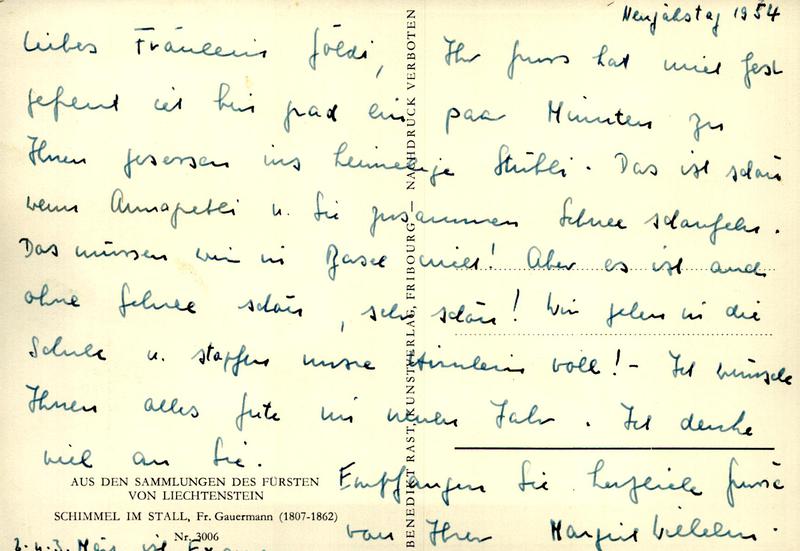 Neujahrstag 1954
Liebes Fräulein Göldi, Ihr Gruss hat mich fest
gefreut ich bin grad ein paar Minuten zu
Ihnen gesessen ins heimelige Stübli. Das ist schön
wenn Annapetli u. Sie zusammen Schnee schaufeln.
Das müssen wir in Basel nicht! Aber es ist auch
ohne Schnee schön, sehr schön! Wir gehen in die
Schule u. stopfen unsre Hirnlein voll! - Ich wünsche
Ihnen alles Gute im neuen Jahr. Ich denke
viel an Sie.
Empfangen Sie herzliche Grüsse
von Ihrer Margrit
AUS DEN SAMMLUNGEN DES FÜRSTEN
VON LIECHTENSTEIN
SCHIMMEL IM STALL, Fr. Gauermann (1807-1862)
Nr. 3006
BENEDIKT RAST, KUNSTVERLAG, FRIBOURG — NACHDRUCK VERBOTEN